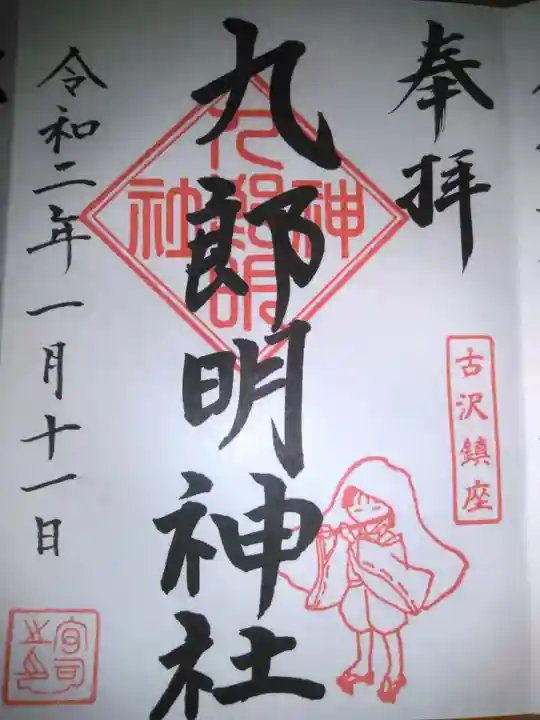 奉拝
古沢鎮座
九郎明神社
九郎明
神
社
令和二年一月十一日
宮司